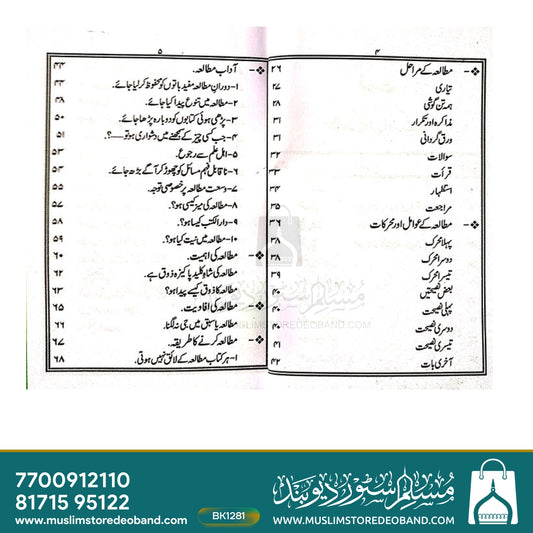 ۴
❖- مطالعہ کے مراحل ۲۶
تیاری ۲۷
ہمہ تن گوشی ۲۸
مذاکرہ اور تکرار ۳۱
ورق گردانی ۳۱
سوالات ۳۲
قرأت ۳۳
استظہار ۳۴
مراجعت ۳۵
❖- مطالعہ کے عوامل اور محرکات ۳۶
پہلا محرک ۳۸
دوسرا محرک ۳۸
تیسرا محرک ۳۹
بعض نصیحتیں ۴۰
پہلی نصیحت ۴۰
دوسری نصیحت ۴۰
تیسری نصیحت ۴۱
آخری بات ۴۲
۵
❖- آداب مطالعہ۔ ۴۴
۱- دوران مطالعہ مفید باتوں کو محفوظ کر لیا جائے۔ ۴۴
۲- مطالعہ میں تنوع پیدا کیا جائے۔ ۴۸
۳- پڑھی ہوئی کتابوں کو دوبارہ پڑھا جائے۔ ۵۰
۴- جب کسی چیز کے سمجھنے میں دشواری ہو تو—؟۔ ۵۱
۵- اہل علم سے رجوع۔ ۵۳
۶- ناقابل فہم مسائل کو چھوڑ کر آگے بڑھ جائے۔ ۵۴
۷- وسعت مطالعہ پر خصوصی توجہ۔ ۵۵
۸- مطالعہ کی میز کیسی ہو؟۔ ۵۷
۹- دار الکتب کیسا ہو؟۔ ۵۸
۱۰- مطالعہ میں نیت کیا ہو؟۔ ۵۹
❖- مطالعہ کی اہمیت۔ ۶۰
مطالعہ کی شاہ کلید پاکیزہ ذوق ہے۔ ۶۲
مطالعہ کا ذوق کیسے پیدا ہو؟ ۶۳
❖- مطالعہ کی افادیت۔ ۶۵
مطالعہ یا سبق میں جی نہ لگنا۔ ۶۶
❖- مطالعہ کرنے کا طریقہ۔ ۶۷
۱- ہر کتاب مطالعہ کے لائق نہیں ہوتی۔ ۶۸
مسلم اسٹور دیوبند
MUSLIMSTOREDEOBAND.COM
7700912110
81715 95122
www.muslimstoredeoband.com
BK1281
مسلم اسٹور دیوبند
WWW.MUSLIMSTOREDEOBAND.COM